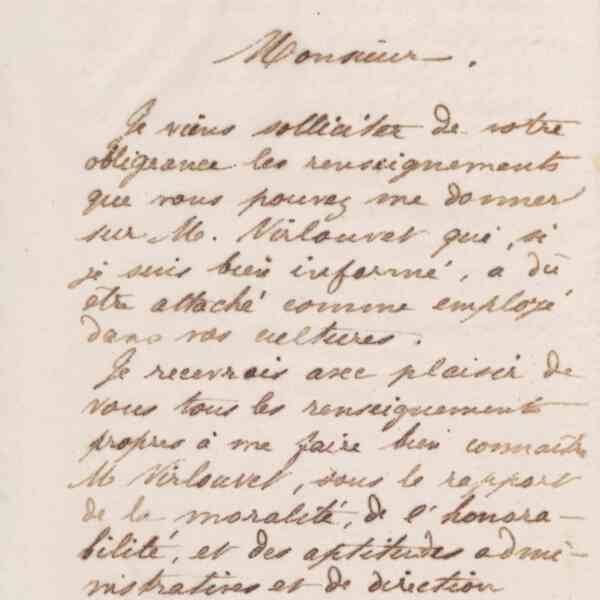 Monsieur.
Je viens solliciter de votre
obligeance les renseignements
que vous pouvez me donner
sur M. Virlouvet qui, si
je suis bien informé, a dû
être attaché comme employé
dans vos cultures.
Je recevrais avec plaisir de
vous tous les renseignements
propres à me faire bien connaître
M Virlouvet, sous le rapport
de la moralité, de l'honora-
bilité, et des aptitudes admi-
nistratives et de direction